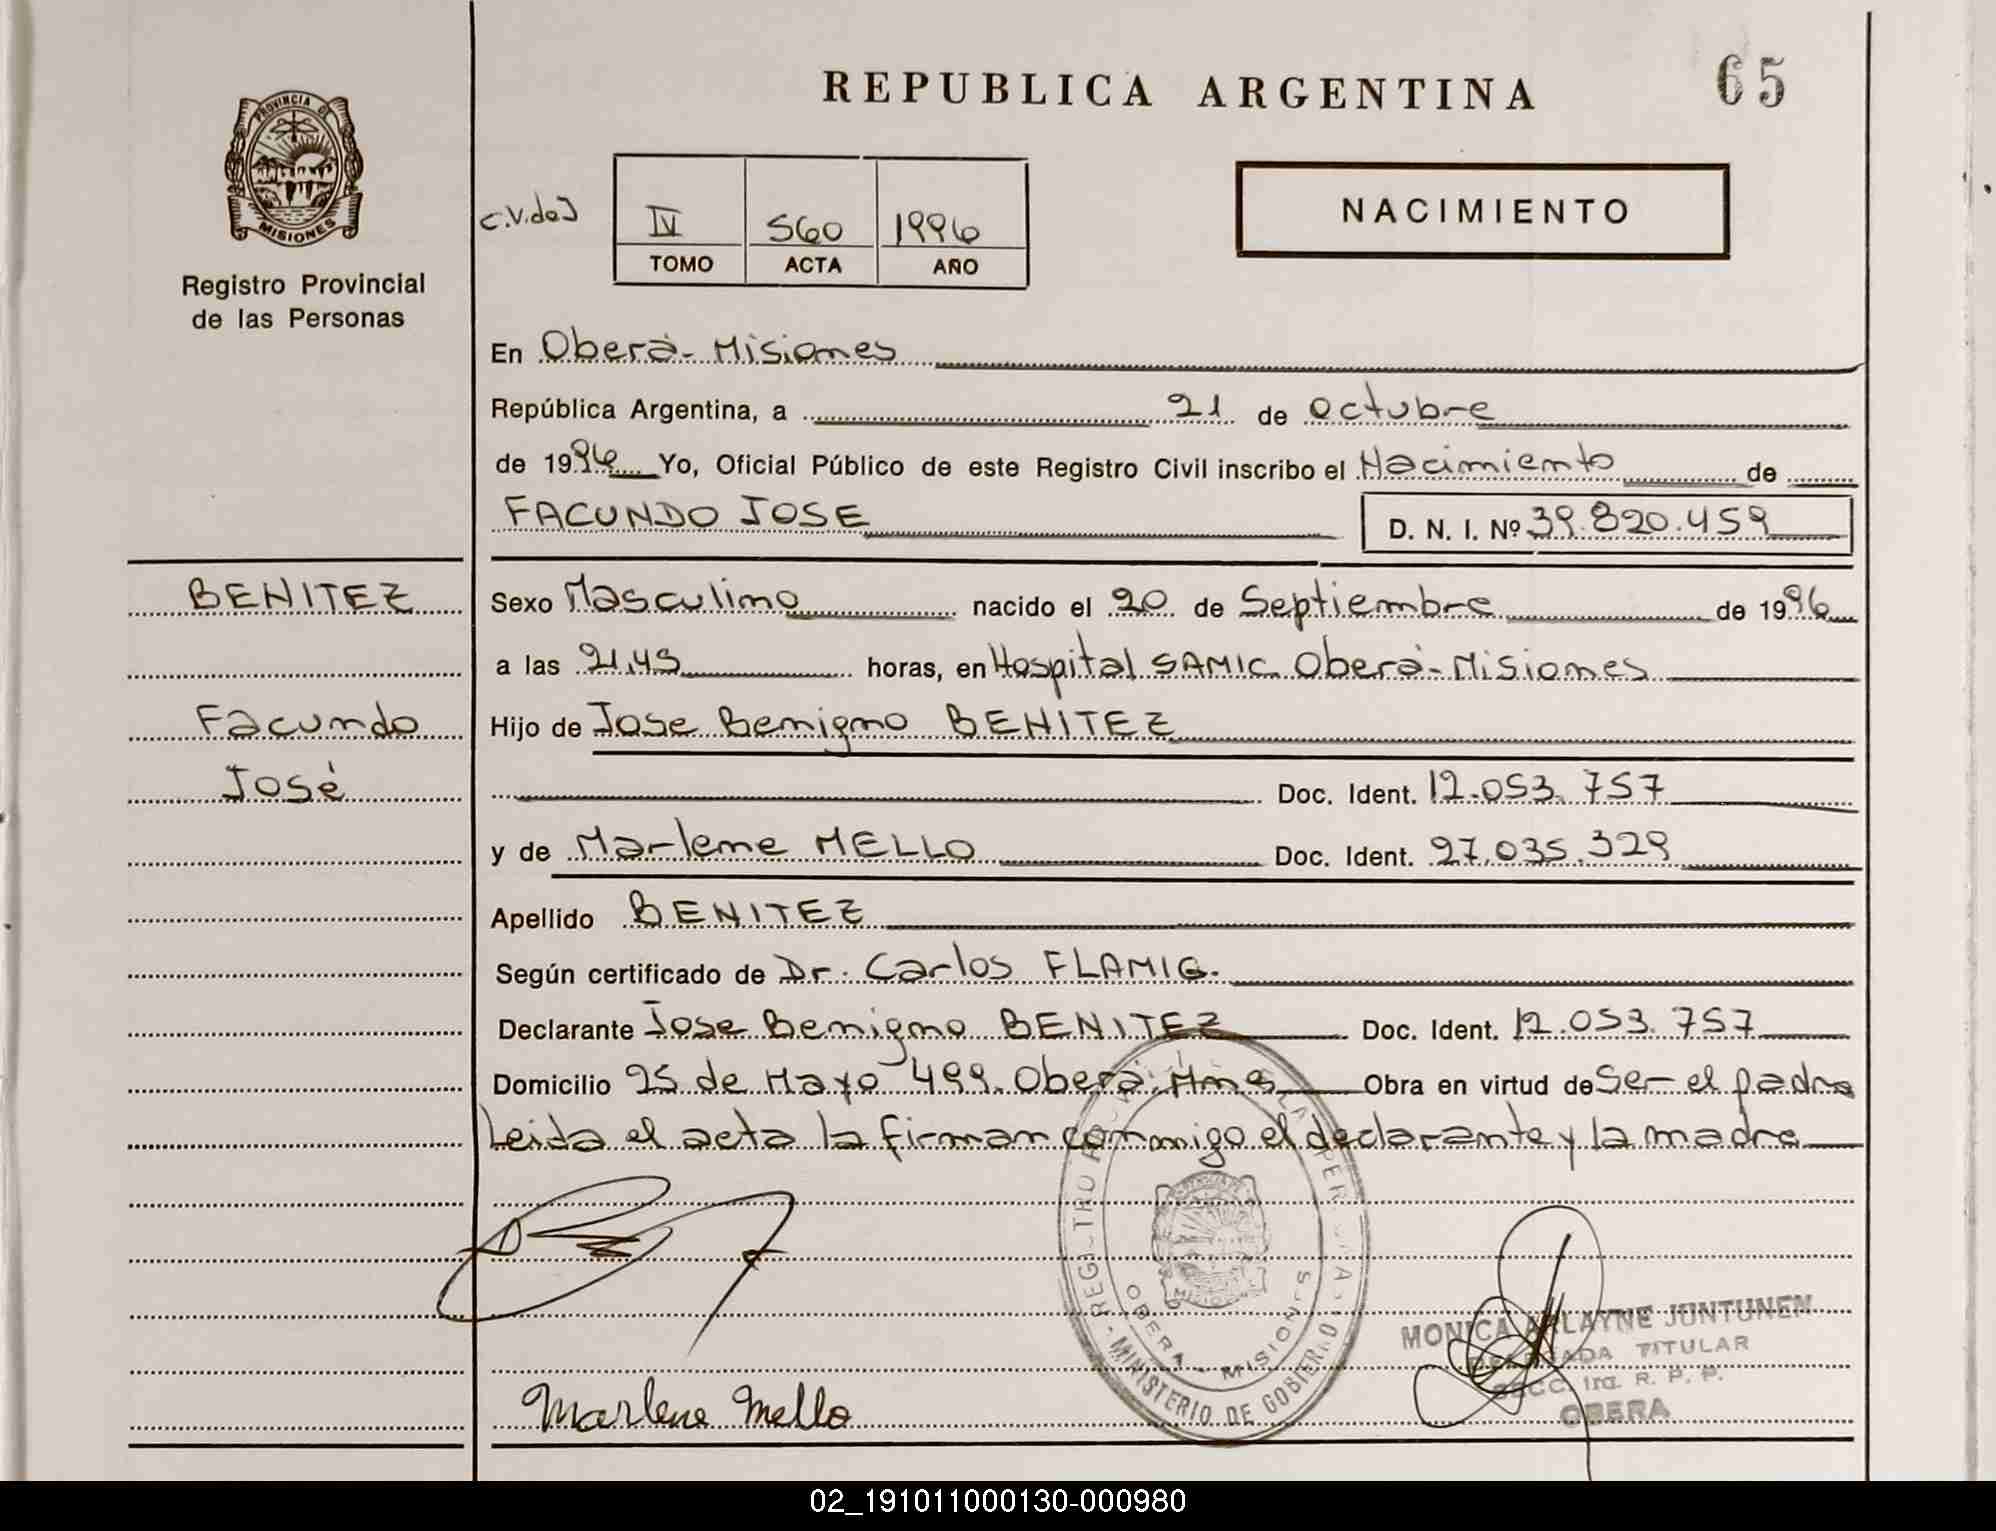 REPUBLICA ARGENTINA
65
PROVINCIA DE
MISIONES
Registro Provincial
de las Personas
IV 560 1996
TOMO ACTA AÑO
NACIMIENTO
En Oberá - Misiones
República Argentina, a 21 de Octubre
de 1996 Yo, Oficial Público de este Registro Civil inscribo el Nacimiento de
FACUNDO JOSE D. N. I. Nº 39.820.459
BENITEZ
Facundo
José
Sexo Masculino nacido el 20 de Septiembre de 1996
a las 21,45 horas, en Hospital SAMIC Oberá - Misiones
Hijo de Jose Benigno BENITEZ
Doc. Ident. 12.053.757
y de Marlene MELLO Doc. Ident. 27.035.329
Apellido BENITEZ
Según certificado de Dr. Carlos FLAMIG.
Declarante Jose Benigno BENITEZ Doc. Ident. 12.053.757
Domicilio 25 de Mayo 499. Oberá. Mnes Obra en virtud de Ser el padre
Leida el acta la firman conmigo el declarante y la madre
MINISTERIO DE GOBIERNO
OBERA - MISIONES
MISIONES
Marlene Mello
MONICA ARLAYNE JUNTUNEN
DELEGADA TITULAR
SECC. 1ra. R. P. P.
OBERA
02_191011000130-000980